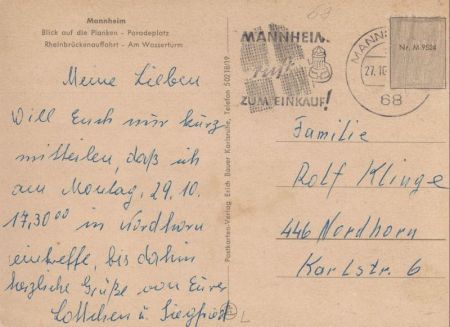 Mannheim
Blick auf die Planken - Paradeplatz
Rheinbrückenauffahrt - Am Wasserturm
Meine Lieben
Will Euch nur kurz
mitteilen, daß ich
am Montag, 29.10.
17,30 00 in Nordhorn
eintreffe, bis dahin
herzliche Grüße von Eurer
Lottchen u. Siegfried
Postkarten-Verlag Erich Bauer Karlsruhe, Telefon 50218/19
67
MANNHEIM
ruft
ZUM EINKAUF!
MANN
27.10
68
Nr. M 9524
Familie
Rolf Klinge
446 Nordhorn
Karlstraße 6
L